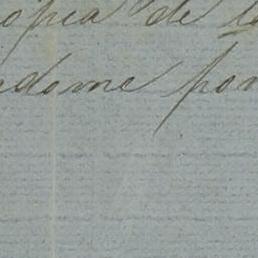 opia de l
dome por